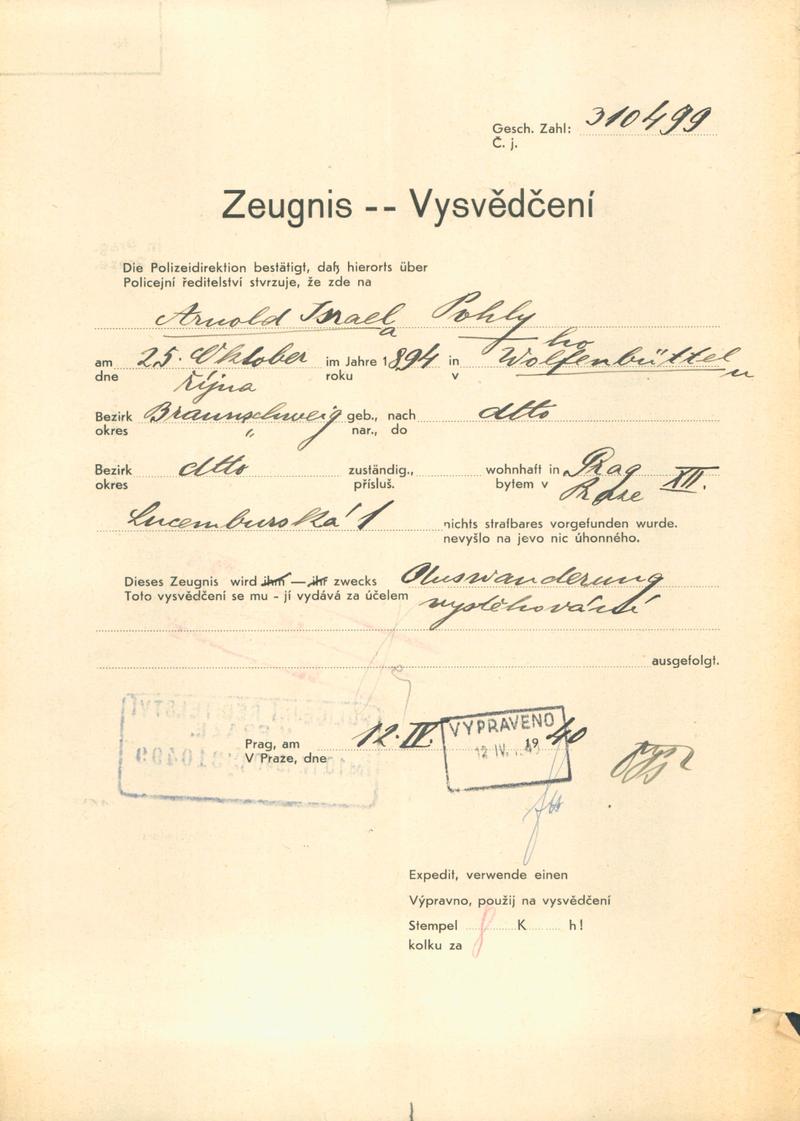 Gesch. Zahl: 310499
Č. j.
Zeugnis -- Vysvědčení
Die Polizeidirektion bestätigt, daß hierorts über
Policejní ředitelství stvrzuje, že zde na
Arnold Israel Pohly
a ho
am 25. Oktober im Jahre 1894 in Wolfenbüttel
dne října roku v u
Bezirk Braunschweig geb., nach dtto
okres " nar., do
Bezirk dtto zuständig., wohnhaft in Prag XII.
okres přísluš. bytem v Praze
Lucemburská 1 nichts strafbares vorgefunden wurde.
nevyšlo na jevo nic úhonného.
Dieses Zeugnis wird ihm — ihr zwecks Auswanderung
Toto vysvědčení se mu - jí vydává za účelem vystěhování
ausgefolgt.
VYPRAVENO
Prag, am 12. IV. 40
V Praze, dne 12 IV. 19
Expedit, verwende einen
Výpravno, použij na vysvědčení
Stempel 8 K h!
kolku za